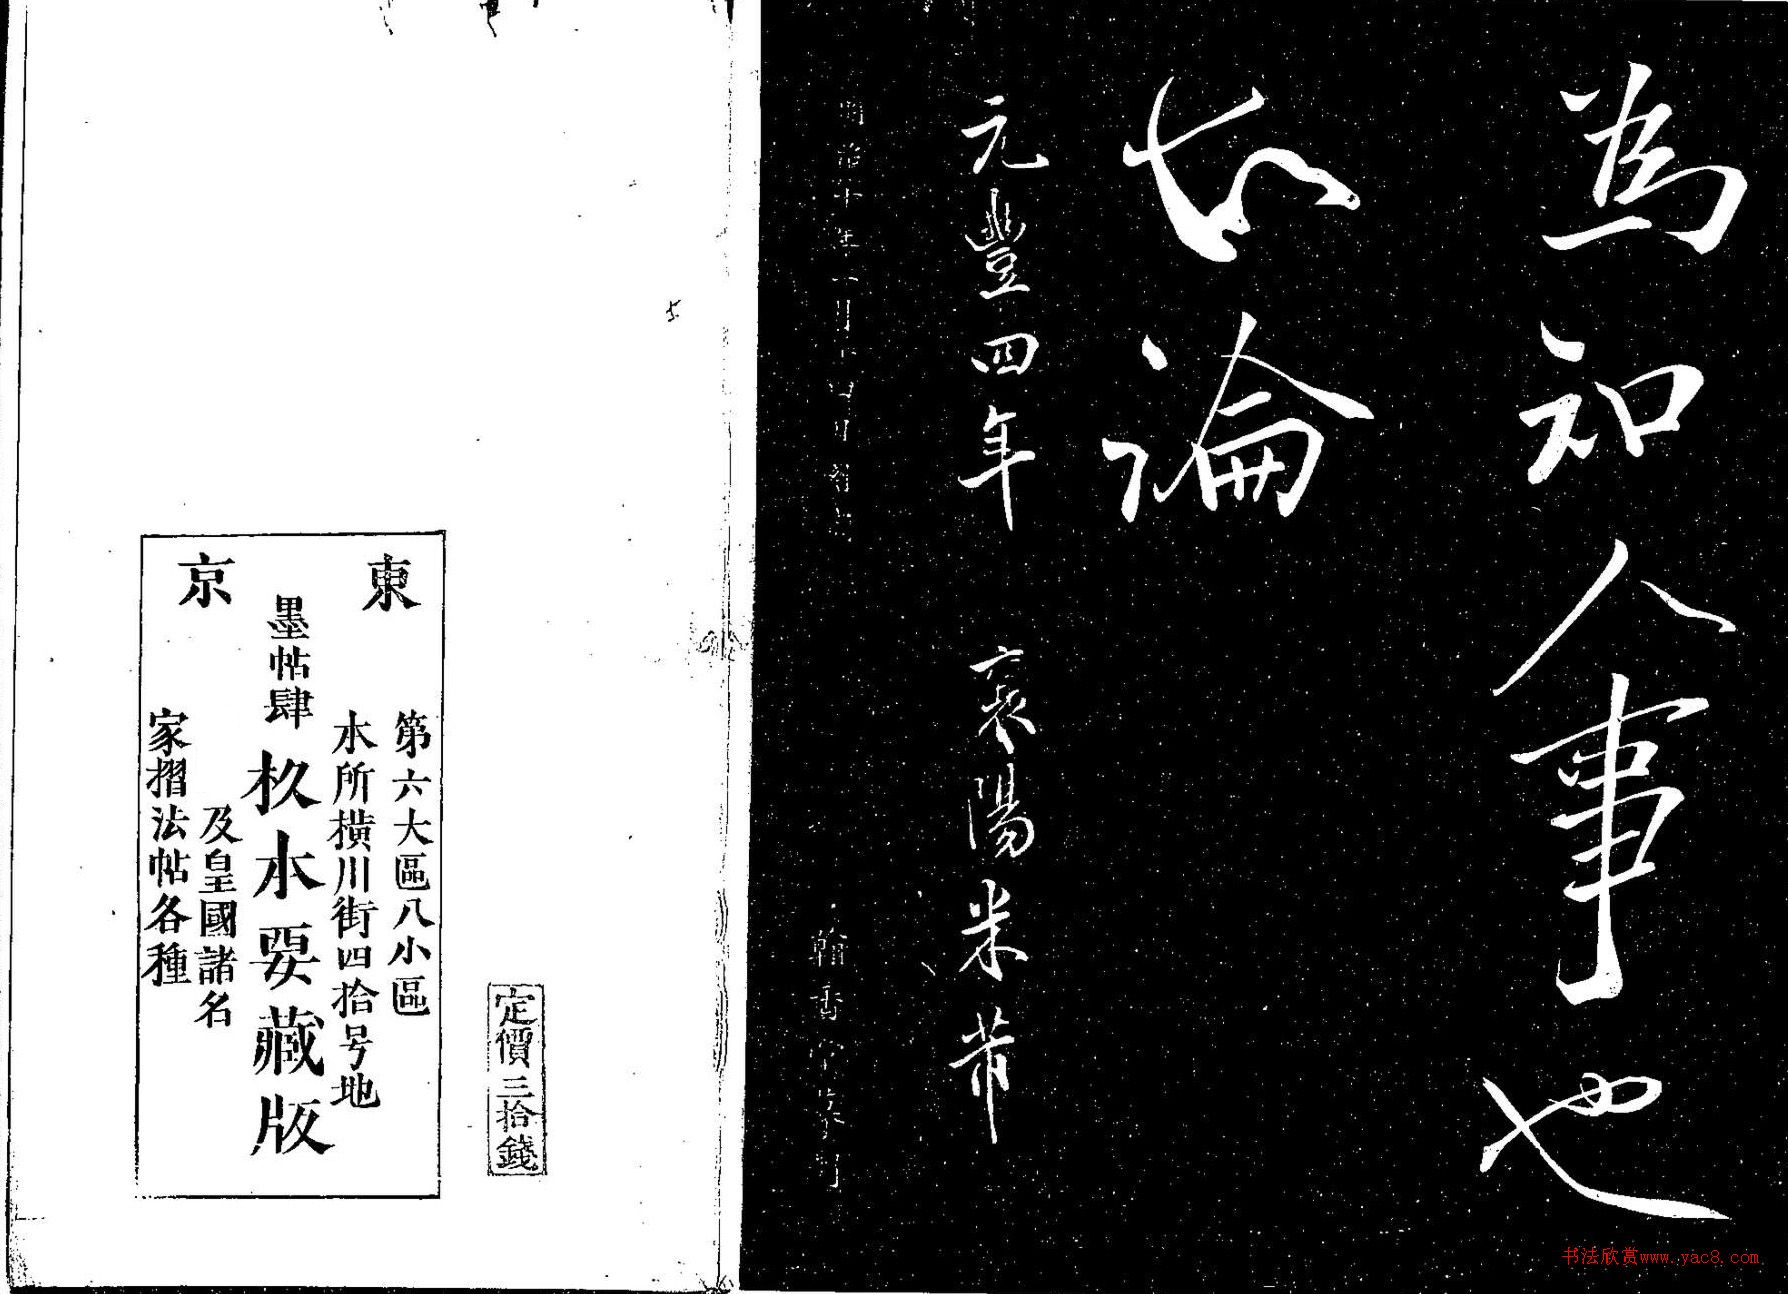 為知人事也
論
元豐四年 襄陽米芾
明治十年一月
定價三拾錢
東京
第六大區八小區
本所橫川街四拾号地
墨帖肆 杦本要藏版
及皇國諸名
家摺法帖各種
书法欣赏www.yac8.com